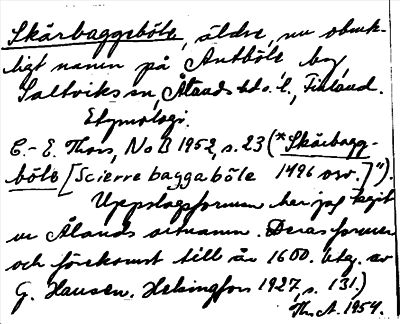 Skärbaggeböle, äldre, nu obruk-
ligt namn på Antböle by
Saltviks sn, Ålands hd o. l., Finland.
Etymologi.
C.-E. Thors, NoB 1952, s. 23 ("*Skärbagg-
böle [Scierrebaggaböle 1496 osv.]").
Uppslagsformen har jag tagit
ur Ålands ortnamn. Deras former
och förekomst till år 1600. Utg. av
G. Hausen. Helsingfors 1927, s. 131.)
Th. A. 1954.